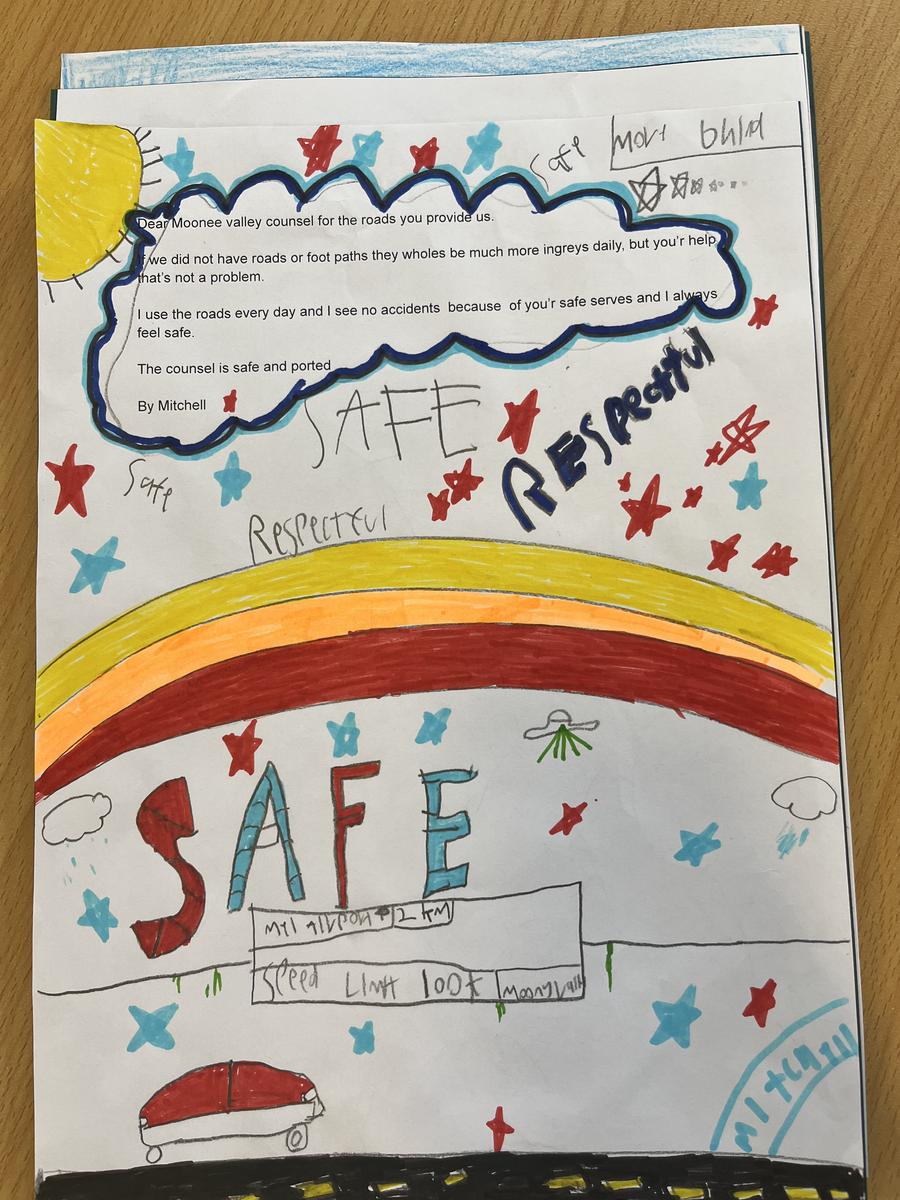 Safe
Dear Moonee valley counsel for the roads you provide us.
If we did not have roads or foot paths they wholes be much more ingreys daily, but you'r help
that's not a problem.
I use the roads every day and I see no accidents because of you'r safe serves and I always
feel safe.
The counsel is safe and ported
By Mitchell
SAFE
RESPectful
Safe
Respectful
SAFE
2 KM
Speed Limit 100K